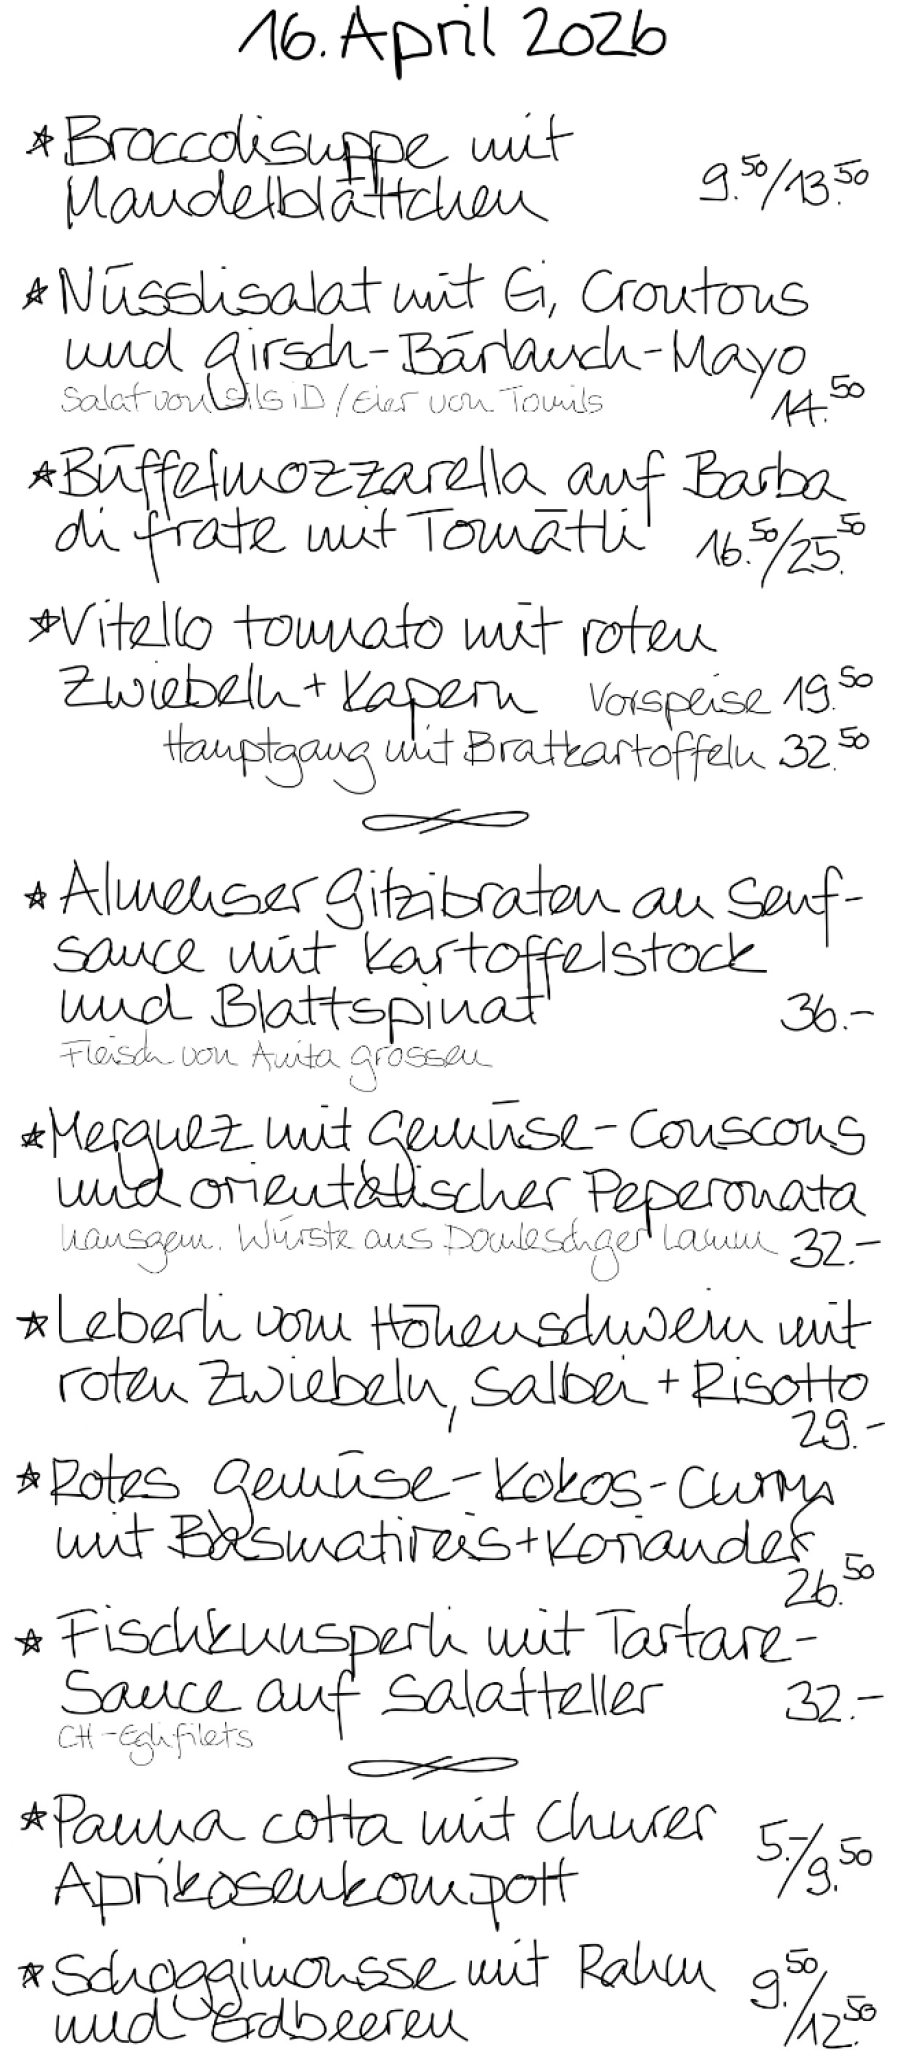 16. April 2026
* Broccolisuppe mit
Mandelblättchen 9.50/13.50
* Nüsslisalat mit Ei, Croutons
und Girsch-Bärlauch-Mayo
Salat von Sils iD / Eier von Tomils 14.50
* Büffelmozzarella auf Barba
di frate mit Tomätli 16.50/25.50
* Vitello tonnato mit roten
Zwiebeln + Kapern Vorspeise 19.50
Hauptgang mit Bratkartoffeln 32.50
* Almenser Gitzibraten an Senf-
sauce mit Kartoffelstock
und Blattspinat 36.-
Fleisch von Anita Grossen
* Merguez mit Gemüse-Couscous
und orientalischer Peperonata
hausgem. Würste aus Domleschger Lamm 32.-
* Leberli vom Höhenschwein mit
roten Zwiebeln, Salbei + Risotto
29.-
* Rotes Gemüse-Kokos-Curry
mit Basmatireis + Koriander
26.50
* Fischknusperli mit Tartare-
Sauce auf Salatteller 32.-
CH-Eglifilets
* Panna cotta mit Churer
Aprikosenkompott 5.-/9.50
* Schoggimousse mit Rahm
und Erdbeeren 9.50/12.50